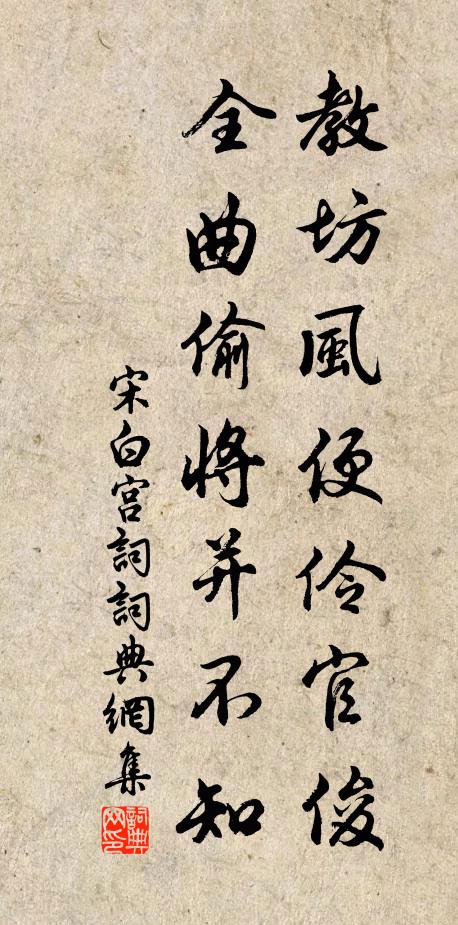 教坊風便伶官俊
全曲偷將并不知
宋白宮詞詞典網集
詞典网印